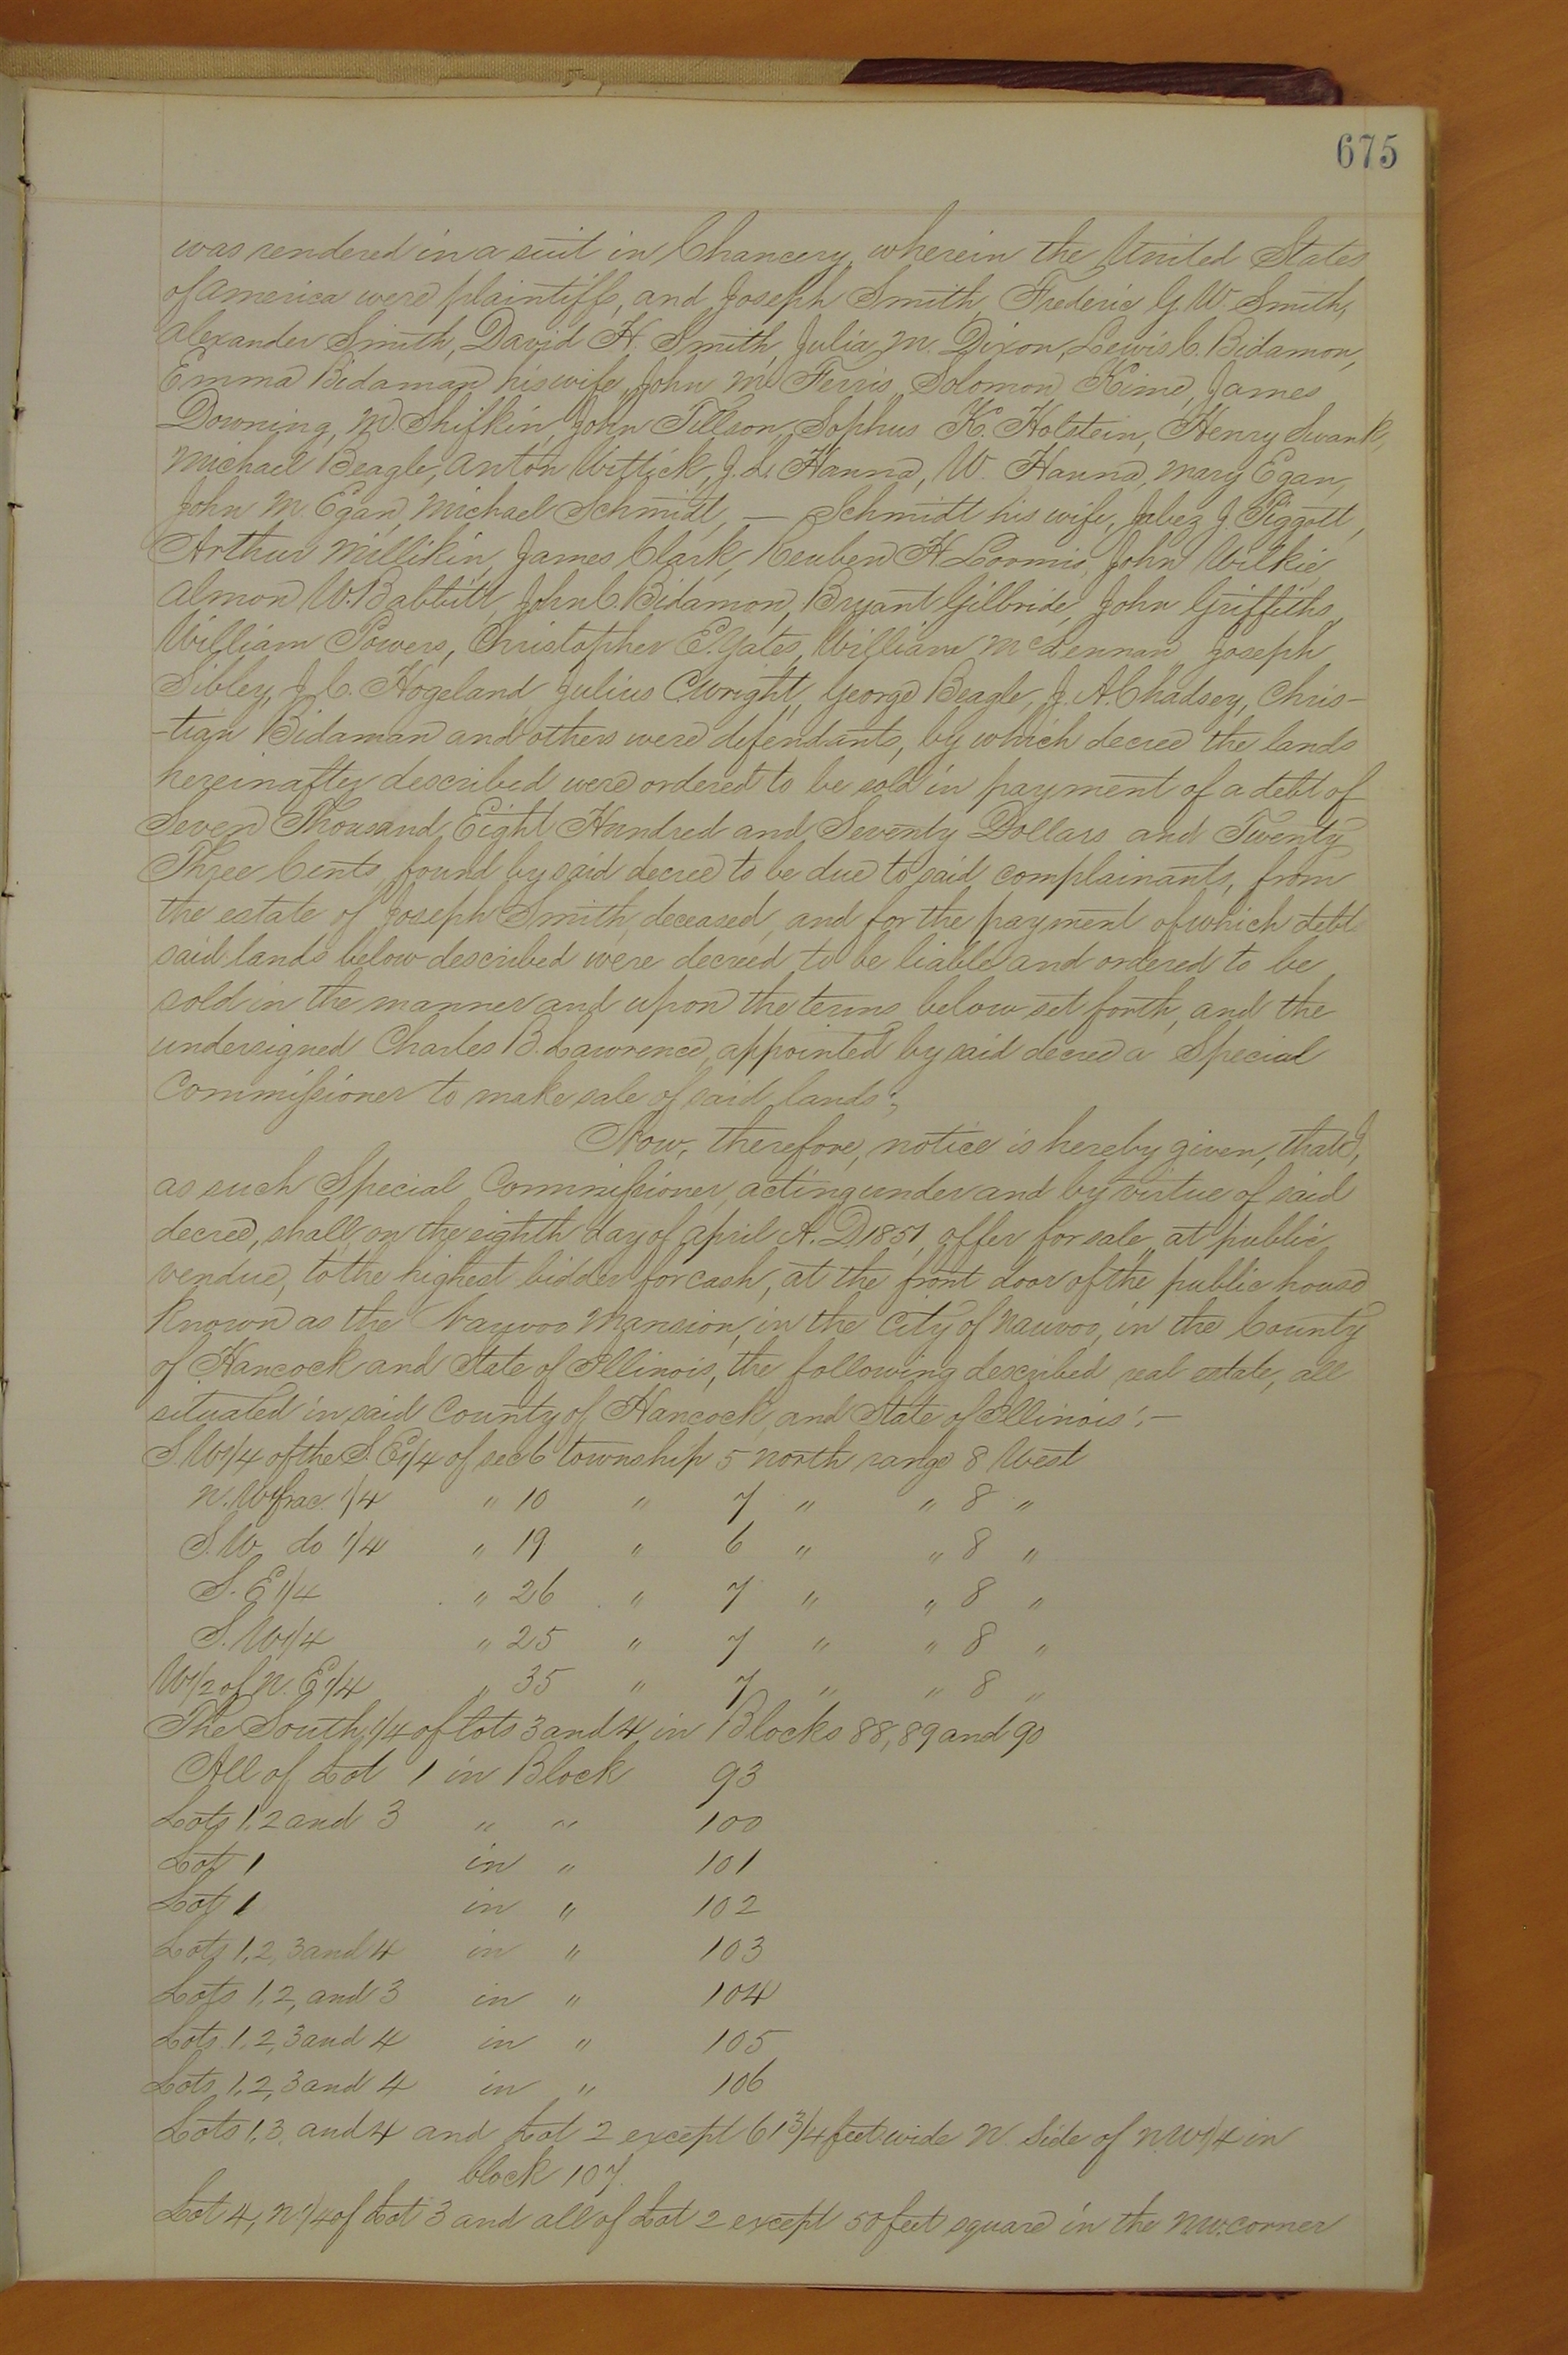 675
was rendered in a suit in Chancery, wherein the United States
of America were plaintiffs, and Joseph Smith, Frederic G. W. Smith,
Alexander Smith, David H. Smith, Julia M. Dixon, Lewis C. Bidamon,
Emma Bidaman his wife, John M. Ferris, Solomon Kime, James
Downing, M. Shifkin, John Tillson, Sophus K. Holstein, Henry Swank,
Michael Beagle, Anton Wittick, J. L. Hanna, W. Hanna, Mary Egan,
John M. Egan, Michael Schmidt, — Schmidt his wife, Jabez J. Piggott,
Arthur Millikin, James Clark, Reuben H. Loomis, John Wilkie
Almon W. Babbitt, John C. Bidamon, Bryant Gilbride, John Griffiths,
William Powers, Christopher E. Yates, William McLennan, Joseph
Sibley, J. C. Hogeland, Julius C. Wright, George Beagle, J. A. Chadsey, Chris-
-tian Bidaman and others were defendants, by which decree the lands
hereinafter described were ordered to be sold in payment of a debt of
Seven Thousand, Eight Hundred and Seventy Dollars and Twenty
Three Cents, found by said decree to be due to said complainants, from
the estate of Joseph Smith, deceased, and for the payment of which debt
said lands below described were decreed to be liable and ordered to be
sold in the manner and upon the terms below set forth, and the
undersigned Charles B. Lawrence, appointed by said decree a Special
Commissioner to make sale of said lands:,
Now, therefore, notice is hereby given, that I,
as such Special Commissioner, acting under and by virtue of said
decree, shall, on the eighth day of April A. D. 1851, offer for sale, at public
vendue, to the highest bidder for cash, at the front door of the public house
known as the Nauvoo Mansion, in the City of Nauvoo, in the County
of Hancock and State of Illinois, the following described real estate, all
situated in said County of Hancock, and State of Illinois:—
S. W 1/4 of the S. E 1/4 of sec 6 township 5 north range 8 West
N. W frac. 1/4 " 10 " 7 " " 8 "
S. W. do 1/4 " 19 " 6 " " 8 "
S. E 1/4 " 26 " 7 " " 8 "
S. W 1/4 " 25 " 7 " " 8 "
W 1/2 of N. E 1/4 " 35 " 7 " " 8 "
The South 1/4 of lots 3 and 4 in Blocks 88, 89 and 90
All of Lot 1 in Block 93
Lots 1, 2 and 3 " " 100
Lot 1 in " 101
Lot 1 in " 102
Lots 1, 2, 3 and 4 in " 103
Lots 1, 2, and 3 in " 104
Lots 1, 2, 3 and 4 in " 105
Lots 1, 2, 3 and 4 in " 106
Lots 1, 3, and 4 and Lot 2 except 61 3/4 feet wide N. Side of N. W 1/4 in
block 107.
Lot 4, N 1/4 of Lot 3 and all of Lot 2 except 50 feet square in the N. W. corner